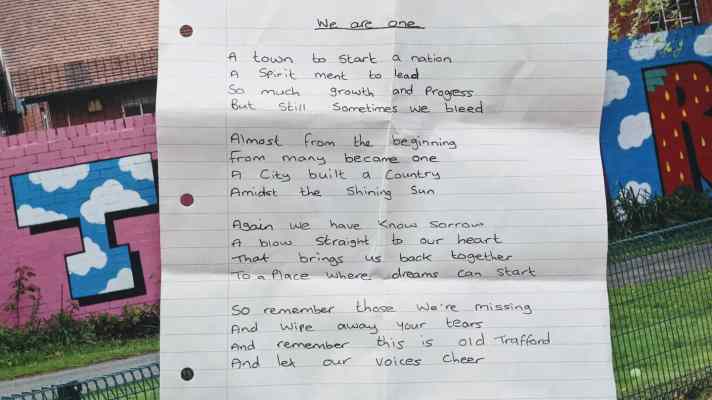 We are one.
A town to start a nation
A Spirit ment to lead
So much growth and Progess
But Still Sometimes we bleed
Almost from the beginning
From many became one
A City built a Country
Amidst the Shining Sun
Again we have Know Sorrow
A blow Straight to our heart
That brings us back together
To a Place where dreams can Start
So remember those We're missing
And Wipe away your tears
And remember this is old Trafford
And let our voices Cheer
I
R